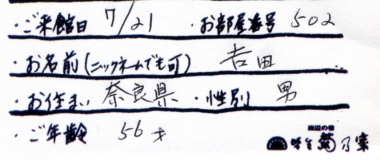 ・ご来館日 7/21 ・お部屋番号 502
・お名前(ニックネームでも可) 吉田
・お住まい 奈良県 ・性別 男
・ご年齢 56才
味宝 菊乃家